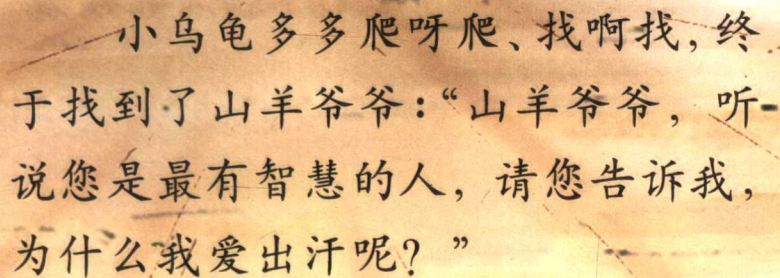 小乌龟多多爬呀爬、找啊找，终
于找到了山羊爷爷：“山羊爷爷，听
说您是最有智慧的人，请您告诉我，
为什么我爱出汗呢？”